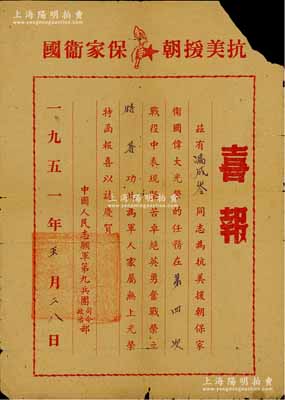 上海陽明拍賣
www.ymauction.com
抗美援朝 保家衞國
喜報
茲有馮成奎同志為抗美援朝保家
衞國偉大光榮的任務在第四次
戰役中表現堅苦卓絕英勇奮戰榮立
功為軍人家屬無上光榮
特函報喜以誌慶賀
中國人民志願軍第九兵團司令部
政治
一九五一年五月二八日
上海陽明拍賣
www.ymauction.com